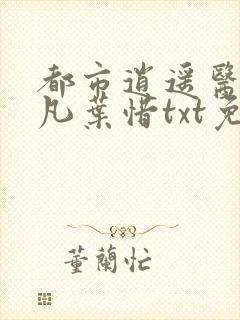 都市逍遥醫
凡葉惜txt免
董蘭忙